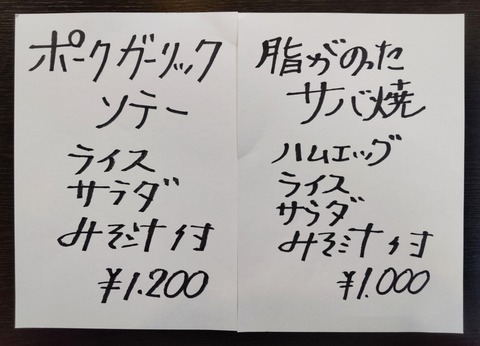 ポークガーリック
ソテー
ライス
サラダ
みそ汁付
¥1.200
脂がのった
サバ焼
ハムエッグ
ライス
サラダ
みそ汁付
¥1.000